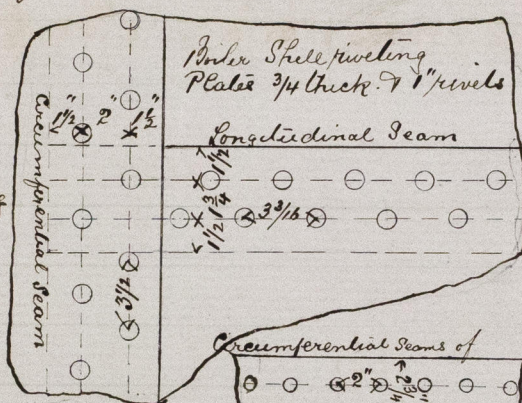 Boiler Shell riveting
Plates 3/4 thick. & 1" rivets
Longitudinal Seam
Circumferential Seam
1 1/2" 2" 1 1/2"
1 1/2
1 3/4
1 1/2
3 3/16
3 1/2
Circumferential Seams of
2"